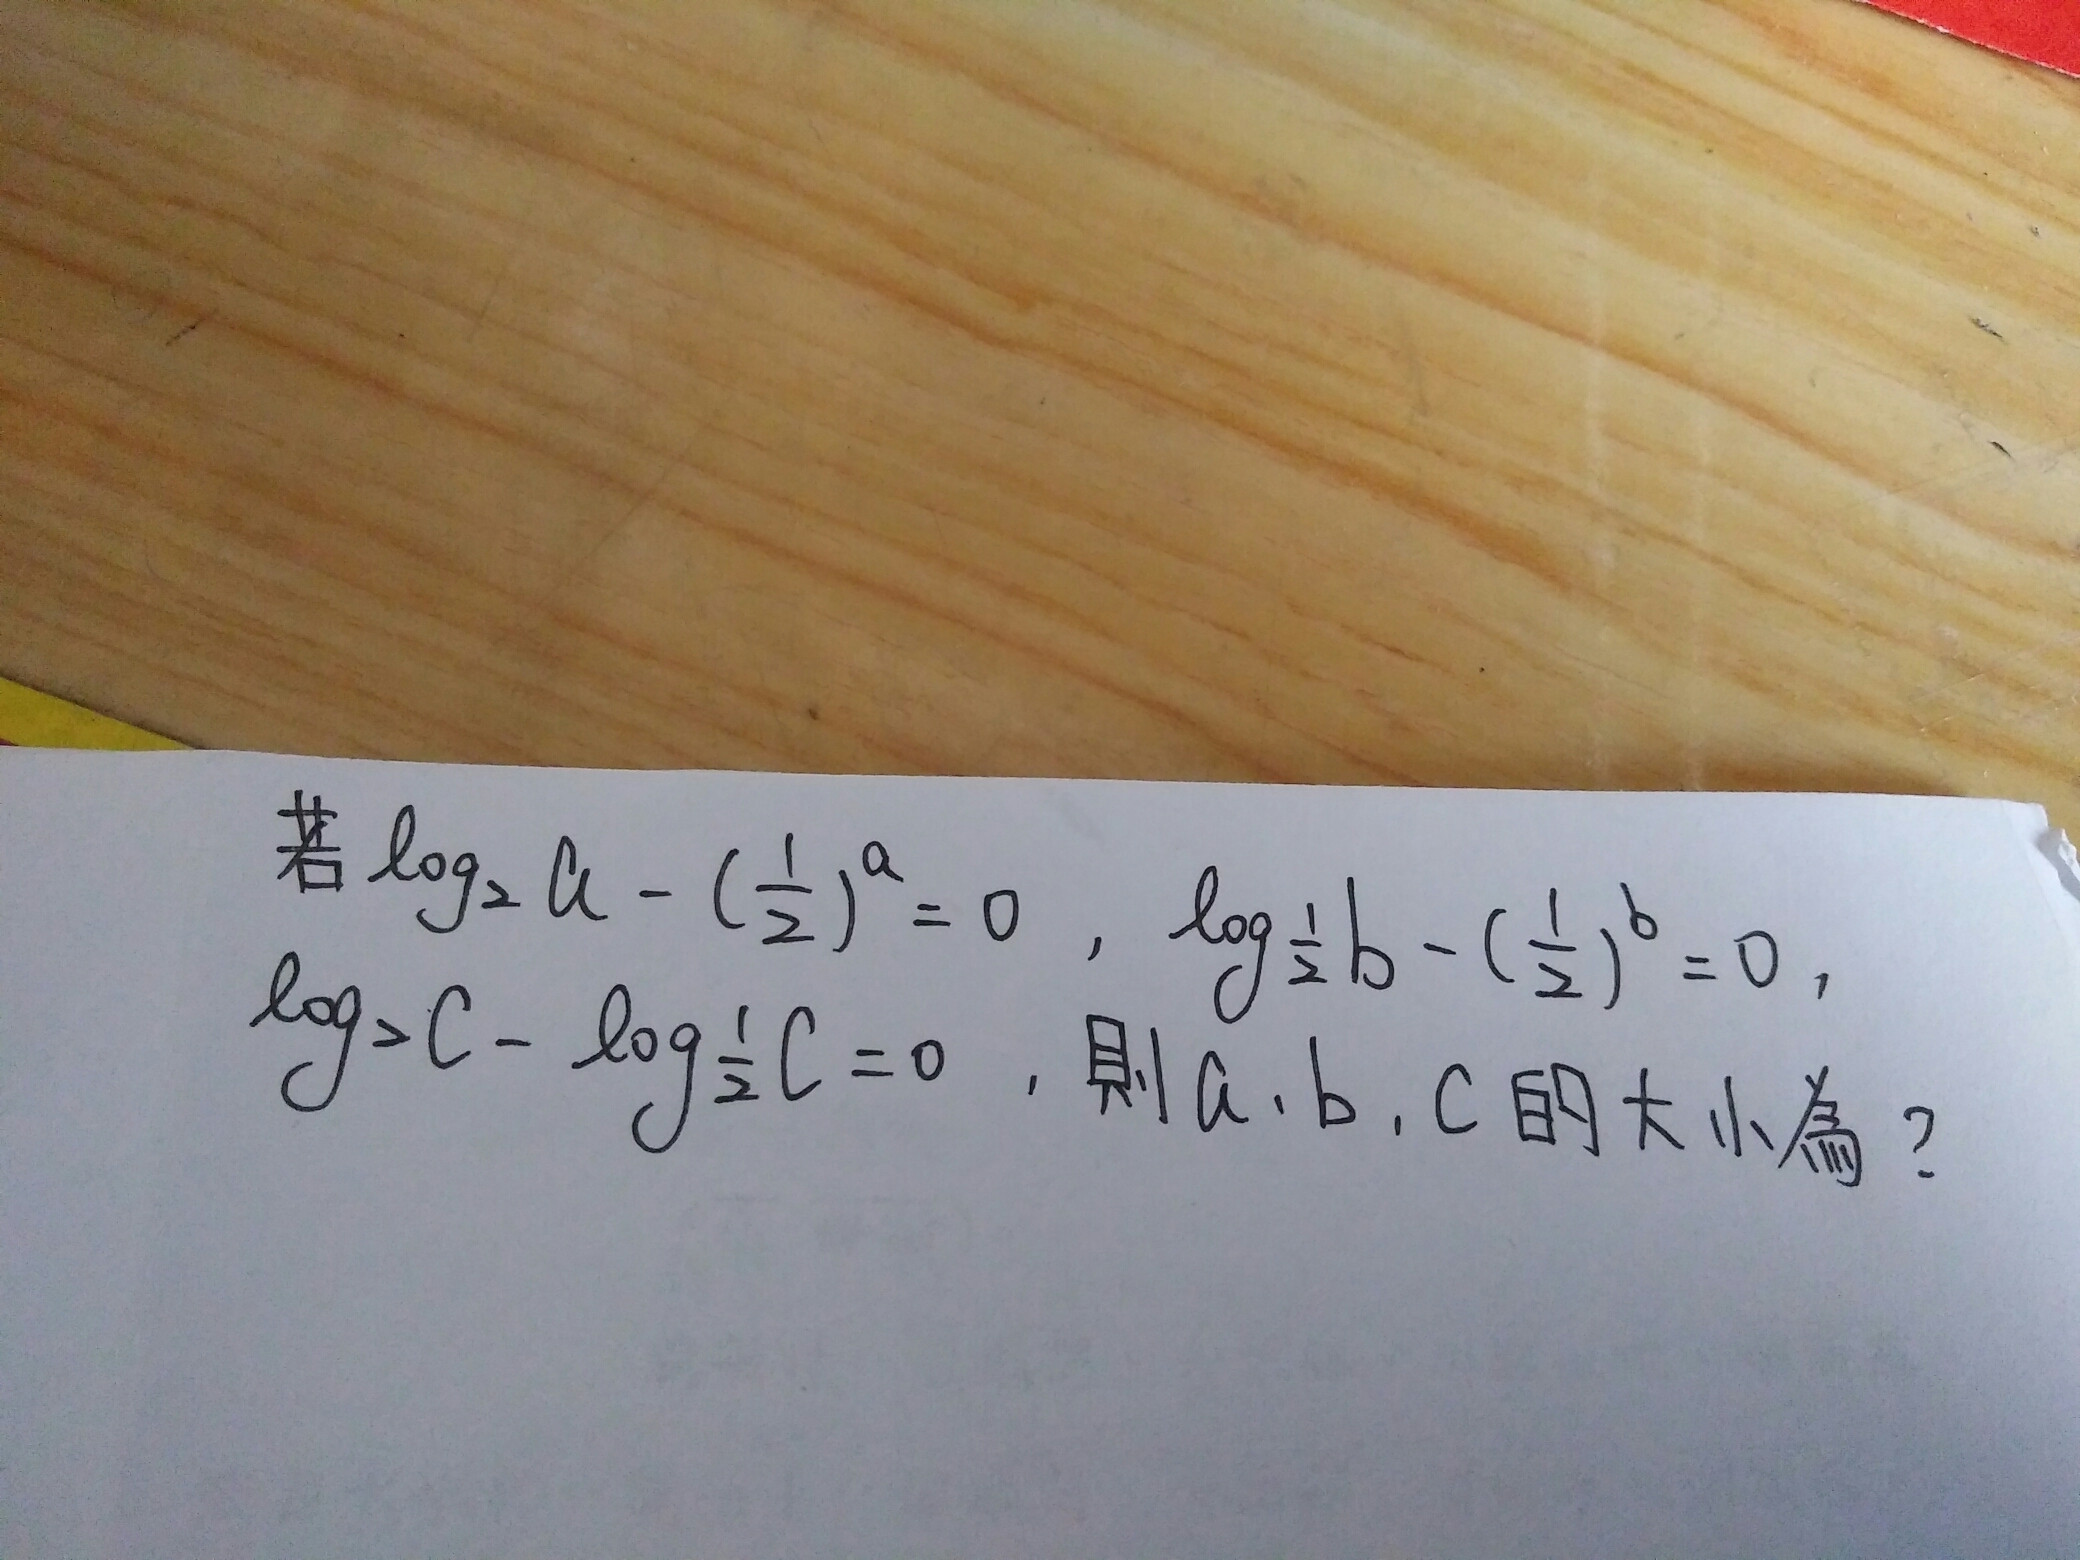 若 log₂ a - (1/2)^a = 0 , log_{1/2} b - (1/2)^b = 0 ,
log₂ C - log_{1/2} C = 0 , 則 a、b、c 的大小為?